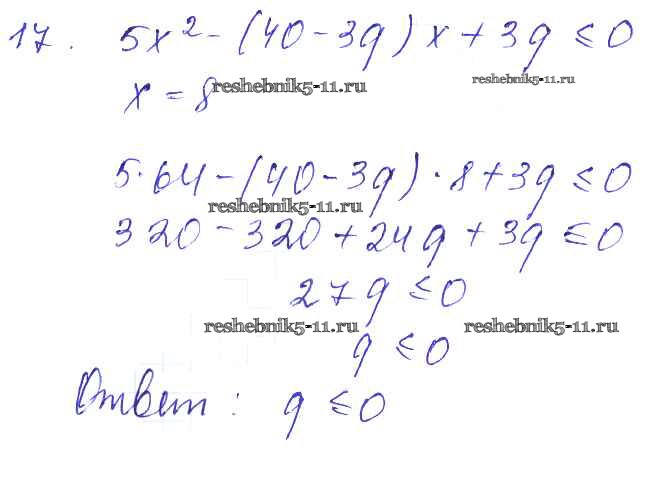 17. 5x² - (40 - 3q)x + 3q ≤ 0
x = 8
reshebnik5-11.ru
reshebnik5-11.ru
5·64 - (40 - 3q)·8 + 3q ≤ 0
reshebnik5-11.ru
320 - 320 + 24q + 3q ≤ 0
27q ≤ 0
reshebnik5-11.ru
reshebnik5-11.ru
q ≤ 0
Ответ: q ≤ 0